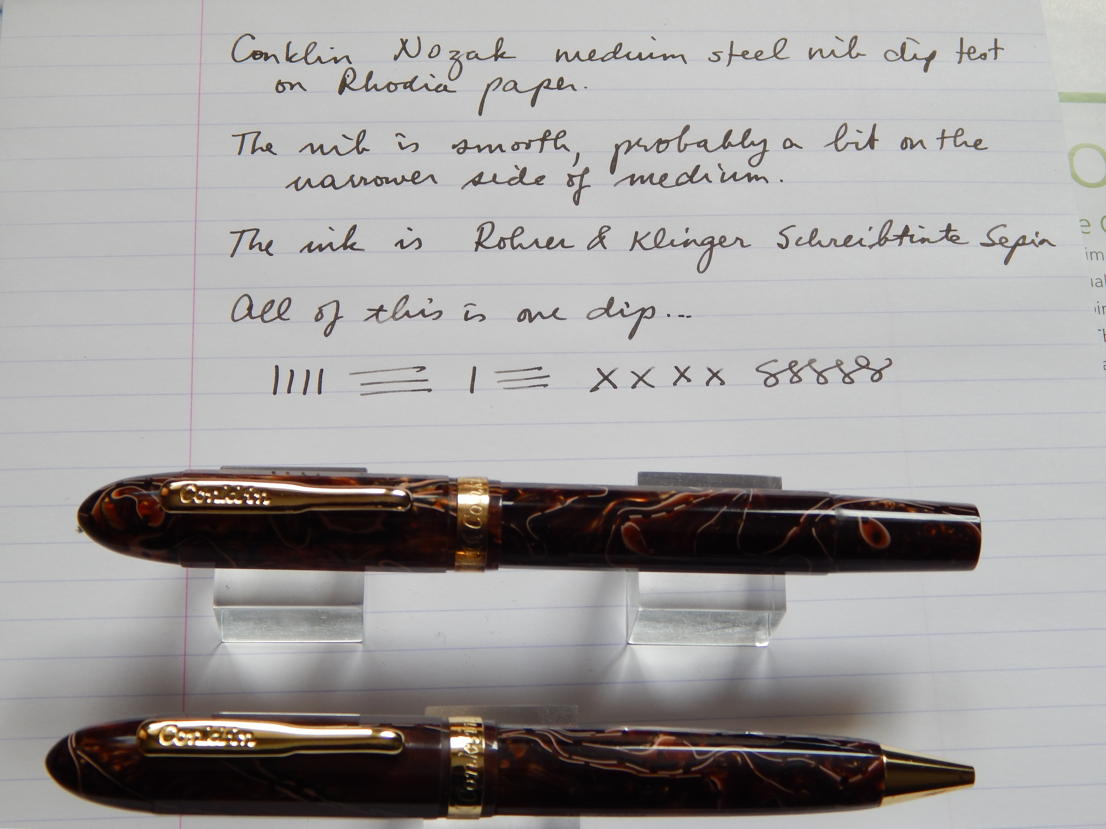 Conklin Nozak medium steel nib dip test
on Rhodia paper.
The nib is smooth, probably a bit on the
narrower side of medium.
The ink is Rohrer & Klinger Schreibtinte Sepia
All of this is one dip...
Conklin
Conklin